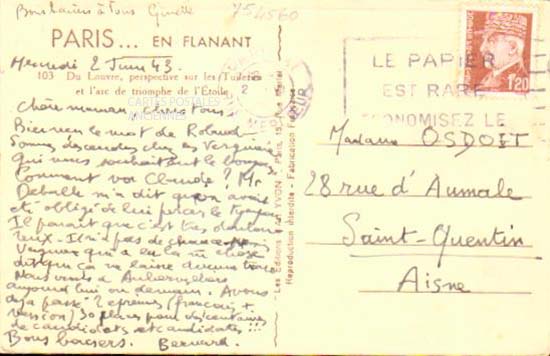 Bons baisers à tous Ginette
Y54560
PARIS... EN FLANANT
Mercredi 2 Juin 43.
103 Du Louvre, perspective sur les Tuileries
et l'arc de triomphe de l'Étoile
CARTES POSTALES
ANCIENNES
Chère maman, Chers tous
Bien reçu le mot de Roland.
Sommes descendus chez les Verguin
qui nous souhaitent le bonjour
Comment va Claude ? Mr
m'a dit qu'on avait
été obligé de lui percer le tympan
Il paraît que c'est très doulou
reux. Il n'a pas de chance. Mais
Verguin qui a eu la même chose
dit que ça ne laisse aucune trace
Nous venons à Aubervilliers
aujourd'hui ou demain. Avons
déjà passé 2 épreuves (français +
version) 30 places pour des centaines
de candidats et candidates !!!
Bons baisers. Bernard.
Les Éditions d'Art YVON - Paris, 15, Rue Martel
Reproduction interdite - Fabrication Française
LE PAPIER
EST RARE
ECONOMISEZ LE
1F20
Madame OSDOIT
28 rue d'Aumale
Saint-Quentin
Aisne